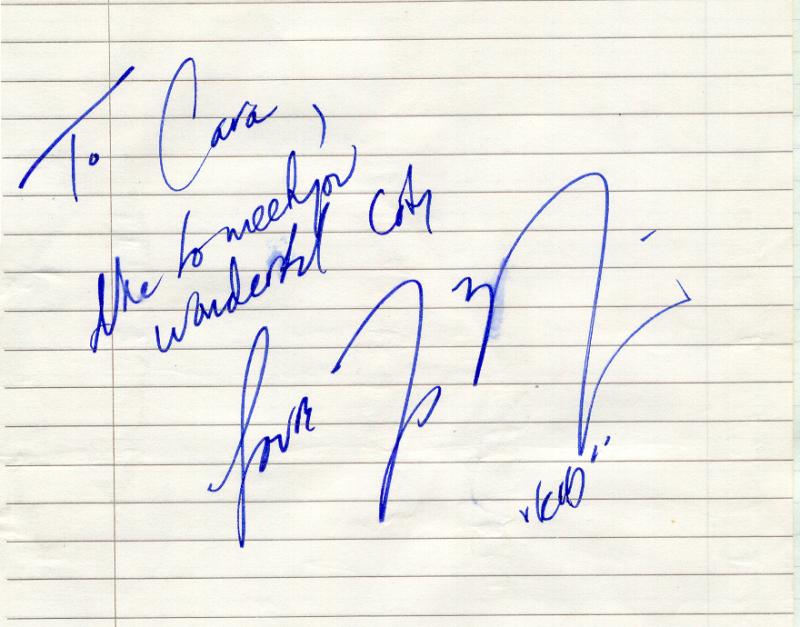 To Cara,
Nice to meet you
wonderful City
love